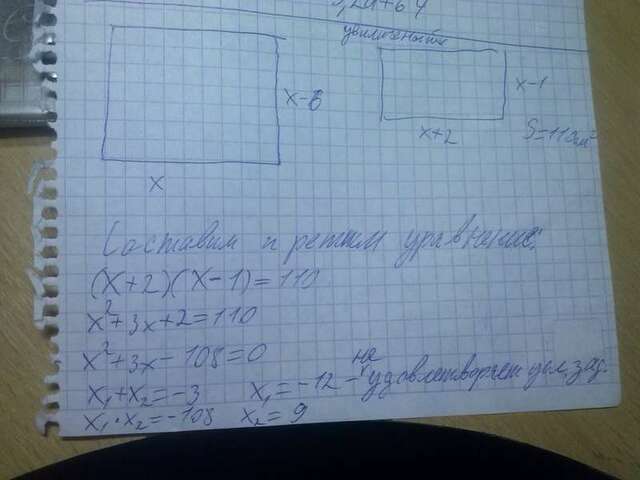 увеличенный
x-6
x-1
x+2
S=110см²
x
Составим и решим уравнение:
(x+2)(x-1)=110
x²+3x+2=110
x²+3x-108=0
x₁+x₂=-3 x₁=-12 - не удовлетворяет усл.зад.
x₁·x₂=-108 x₂=9